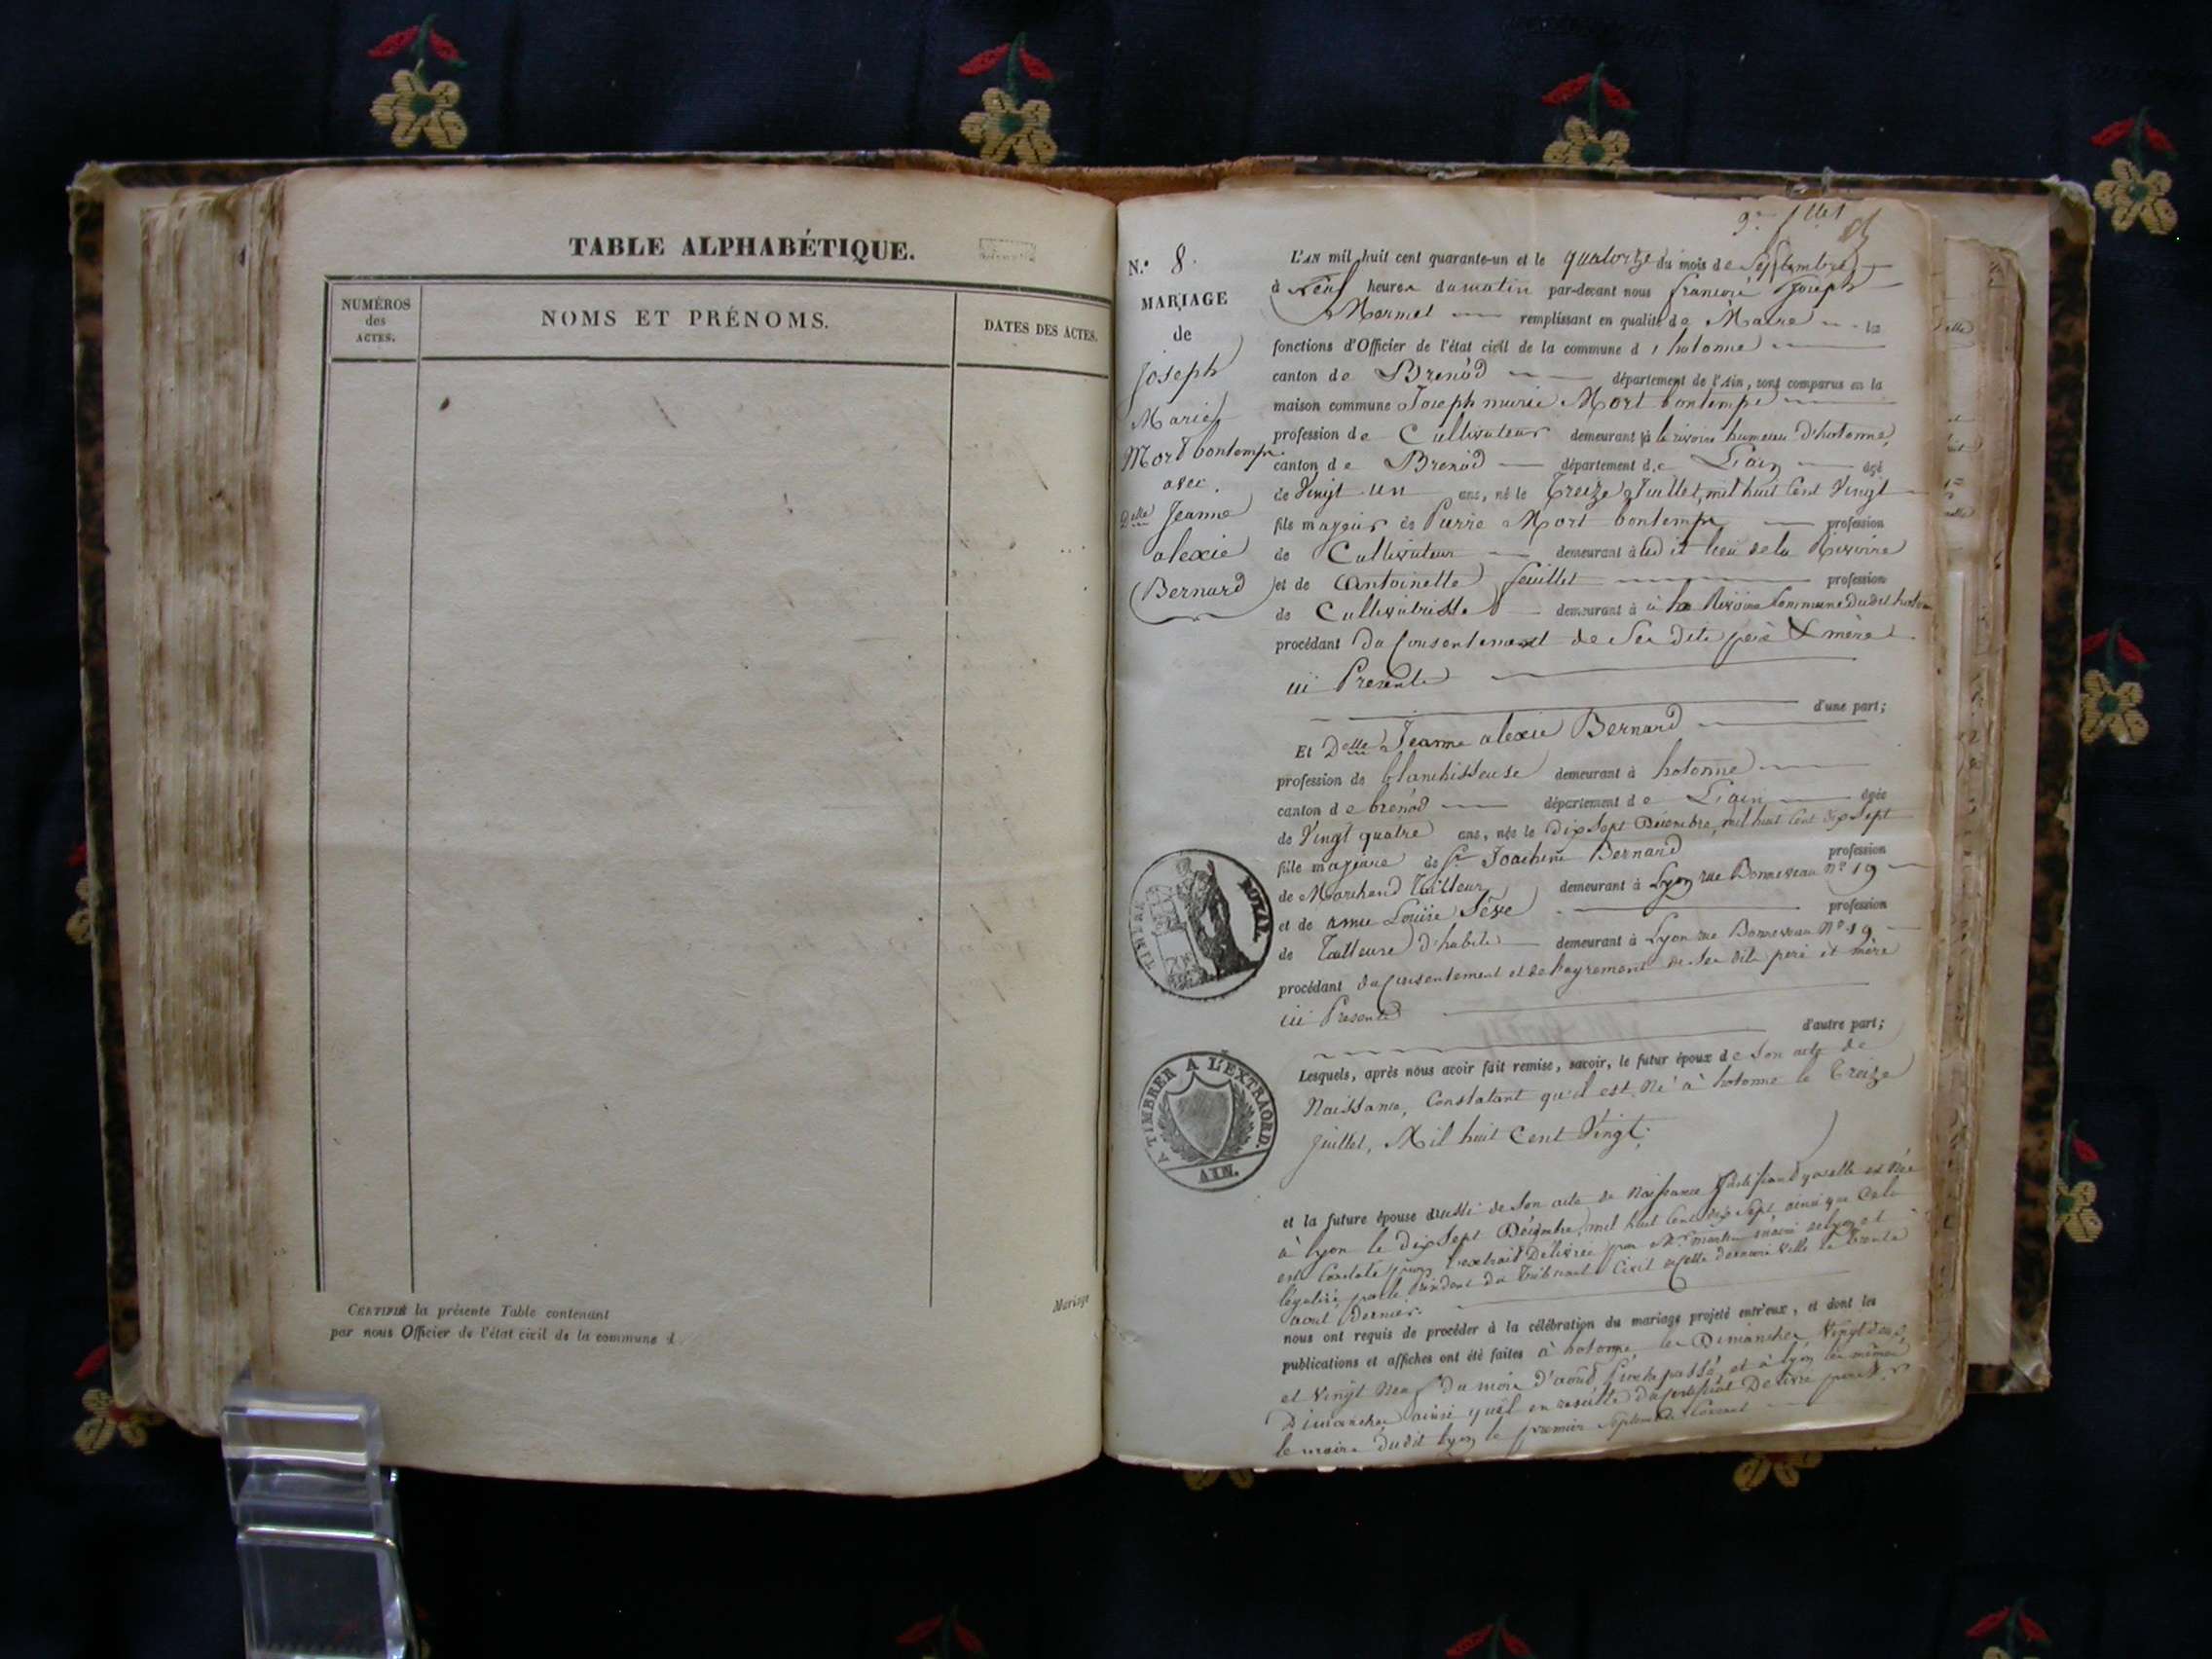 TABLE ALPHABÉTIQUE.
NUMÉROS
des
ACTES.
NOMS ET PRÉNOMS.
DATES DES ACTES.
CERTIFIÉ la présente Table contenant
par nous Officier de l'état civil de la commune d
Mariage
N.º 8.
MARIAGE
de
Joseph
Marie
Mort bontemps
avec
Delle Jeanne
alexie
Bernard
TIMBRE ROYAL
A TIMBRER A L'EXTRAORD.
AIN.
L'AN mil huit cent quarante-un et le quatorze du mois de Septembre
à Neuf heures du matin par-devant nous françois Joseph
Mermet remplissant en qualité de Maire les
fonctions d'Officier de l'état civil de la commune d'hotonne
canton de Brenod département de l'Ain, sont comparus en la
maison commune Joseph marie Mort bontemps
profession de Cultivateur demeurant à la rivoire hameau d'hotonne,
canton de Brenod département de L'ain âgé
de Vingt un ans, né le Treize Juillet, mil huit Cent Vingt
fils majeur de Pierre Mort bontemps profession
de Cultivateur demeurant audit lieu de la Rivoire
et de Antoinette feuillet profession
de Cultivatrice demeurant à à la Rivoire Commune dudit hotonne
procédant du Consentement de Ses dits père & mère
ici Présents
d'une part;
Et Delle Jeanne alexie Bernard
profession de blanchisseuse demeurant à hotonne
canton de brenod département de L'ain âgée
de Vingt quatre ans, née le Dix Sept Décembre, mil huit Cent dix Sept
fille majeure de Sr Joachim Bernard profession
de Marchand Tailleur demeurant à Lyon rue Bonneveau Nº 19
et de Louise Sève profession
de Tailleuse d'habits demeurant à Lyon rue Bonneveau Nº 19
procédant du Consentement et de l'agrément de Ses dits père et mère
ici Présents
d'autre part;
Lesquels, après nous avoir fait remise, savoir, le futur époux de Son acte de
Naissance, Constatant qu'il est Né à hotonne le Treize
Juillet, Mil huit Cent Vingt.
et la future épouse aussi de Son acte de Naissance Justifiant qu'elle est Née
à lyon le dix Sept Décembre, mil huit Cent dix Sept ainsi que Cela
est Constaté par l'extrait Délivré par Mr martin maire de lyon et
légalisé par le Président du Tribunal Civil de cette dernière Ville le trente
avril Dernier.
nous ont requis de procéder à la célébration du mariage projeté entr'eux, et dont les
publications et affiches ont été faites à hotonne les Dimanches Vingt deux
et Vingt Neuf du mois d'août passé, et à lyon les mêmes
Dimanches ainsi qu'il en résulte du Certificat Délivré par
le maire dudit lyon le premier Septembre Courant